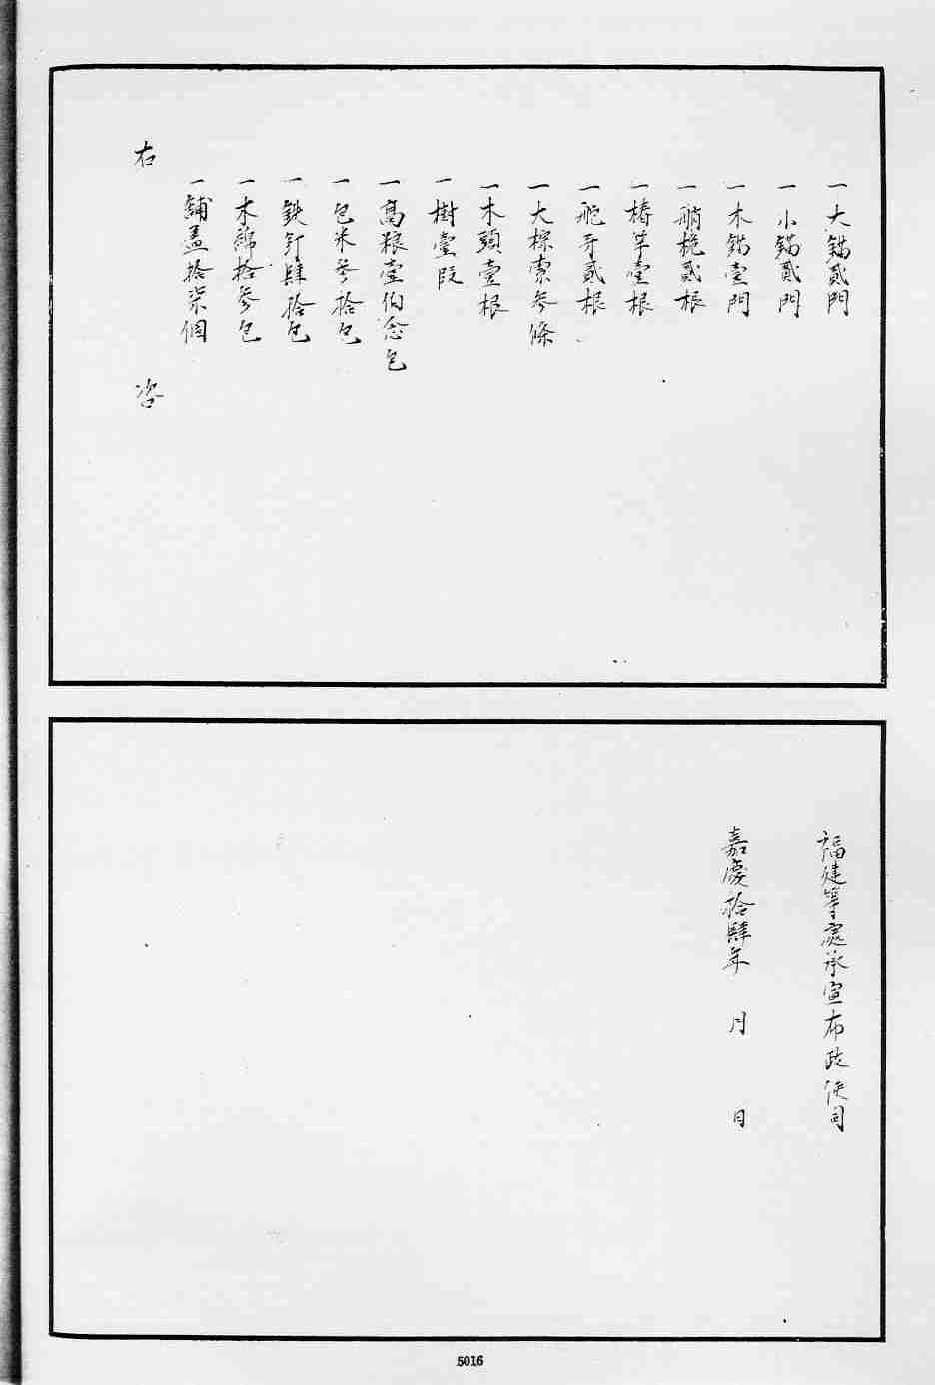 一大錨貳門
一小錨貳門
一木錨壹門
一艄桅貳根
一樁竿壹根
一舵牙貳根
一大棕索參條
一木頭壹根
一樹壹段
一高粮壹伯念包
一包米參拾包
一鉄釘肆拾包
一木綿拾參包
一鋪盖拾柒個
右 咨
福建等處承宣布政使司
嘉慶拾肆年 月 日
5016